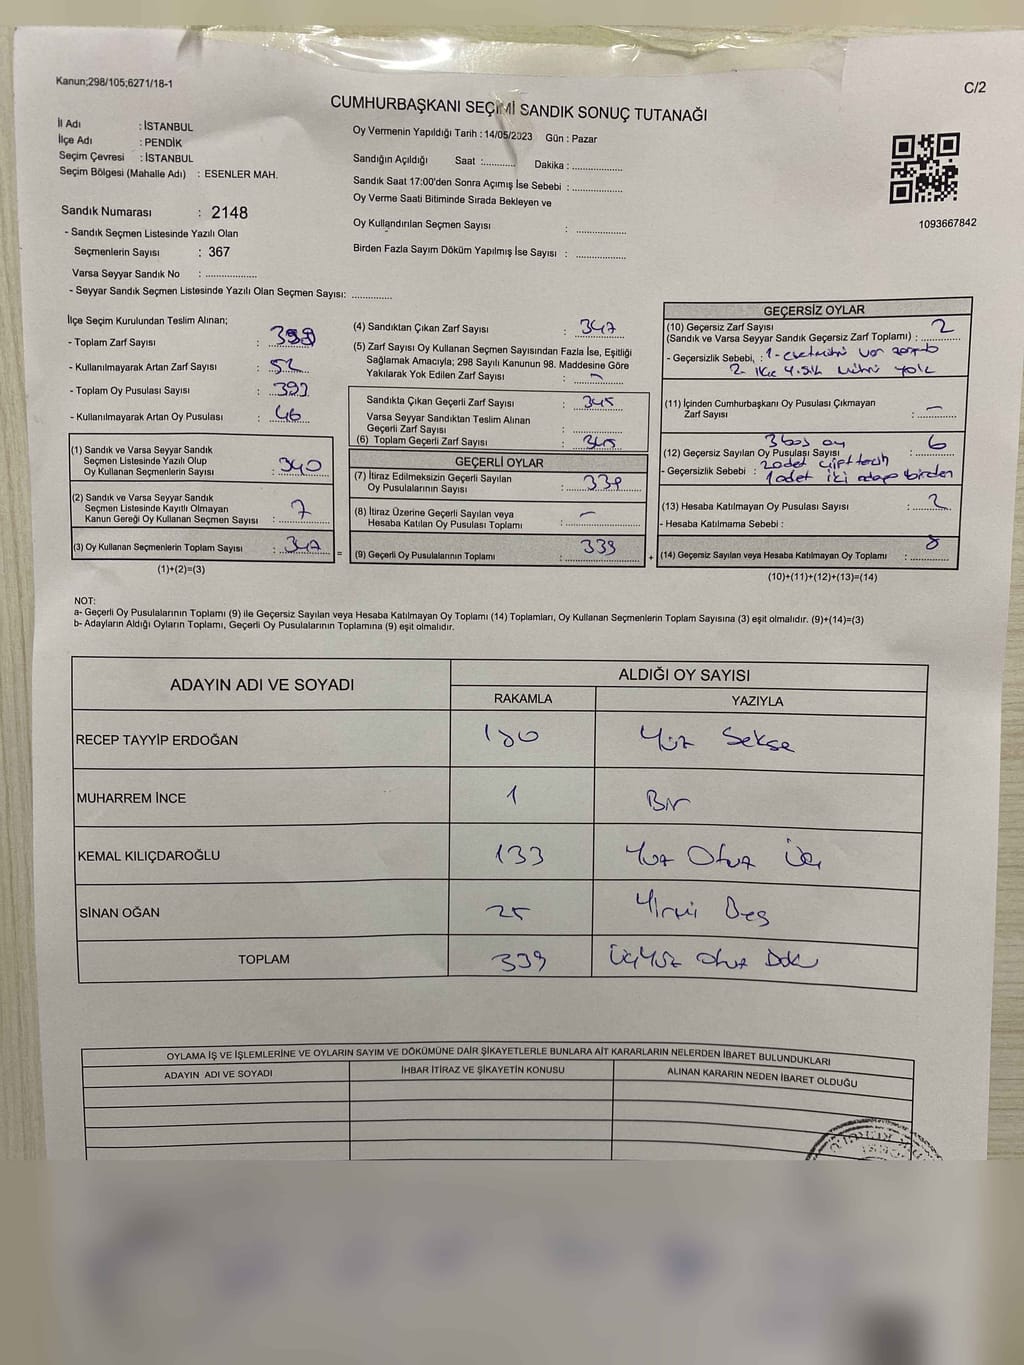 Kanun;298/105;6271/18-1
C/2
CUMHURBAŞKANI SEÇİMİ SANDIK SONUÇ TUTANAĞI
İl Adı : İSTANBUL
İlçe Adı : PENDİK
Seçim Çevresi : İSTANBUL
Seçim Bölgesi (Mahalle Adı) : ESENLER MAH.
Sandık Numarası : 2148
- Sandık Seçmen Listesinde Yazılı Olan
Seçmenlerin Sayısı : 367
Varsa Seyyar Sandık No : ..................
- Seyyar Sandık Seçmen Listesinde Yazılı Olan Seçmen Sayısı: ..............
Oy Vermenin Yapıldığı Tarih : 14/05/2023 Gün : Pazar
Sandığın Açıldığı Saat :........... Dakika : ..................
Sandık Saat 17:00'den Sonra Açımış İse Sebebi : ..................
Oy Verme Saati Bitiminde Sırada Bekleyen ve
Oy Kullandırılan Seçmen Sayısı : ..................
Birden Fazla Sayım Döküm Yapılmış İse Sayısı : ..................
1093667842
İlçe Seçim Kurulundan Teslim Alınan;
- Toplam Zarf Sayısı :
- Kullanılmayarak Artan Zarf Sayısı : 52
- Toplam Oy Pusulası Sayısı : 393
- Kullanılmayarak Artan Oy Pusulası : 46
(1) Sandık ve Varsa Seyyar Sandık
Seçmen Listesinde Yazılı Olup
Oy Kullanan Seçmenlerin Sayısı : 340
(2) Sandık ve Varsa Seyyar Sandık
Seçmen Listesinde Kayıtlı Olmayan
Kanun Gereği Oy Kullanan Seçmen Sayısı : 7
(3) Oy Kullanan Seçmenlerin Toplam Sayısı : 347 =
(1)+(2)=(3)
(4) Sandıktan Çıkan Zarf Sayısı : 347
(5) Zarf Sayısı Oy Kullanan Seçmen Sayısından Fazla İse, Eşitliği
Sağlamak Amacıyla; 298 Sayılı Kanunun 98. Maddesine Göre
Yakılarak Yok Edilen Zarf Sayısı : –
Sandıkta Çıkan Geçerli Zarf Sayısı : 345
Varsa Seyyar Sandıktan Teslim Alınan
Geçerli Zarf Sayısı :
(6) Toplam Geçerli Zarf Sayısı : 345
GEÇERLİ OYLAR
(7) İtiraz Edilmeksizin Geçerli Sayılan
Oy Pusulalarının Sayısı : 339
(8) İtiraz Üzerine Geçerli Sayılan veya
Hesaba Katılan Oy Pusulası Toplamı : –
(9) Geçerli Oy Pusulalarının Toplamı : 339 +
GEÇERSİZ OYLAR
(10) Geçersiz Zarf Sayısı
(Sandık ve Varsa Seyyar Sandık Geçersiz Zarf Toplamı) : 2
- Geçersizlik Sebebi, : 1-
2
(11) İçinden Cumhurbaşkanı Oy Pusulası Çıkmayan
Zarf Sayısı : –
3 boş oy
(12) Geçersiz Sayılan Oy Pusulası Sayısı : 6
2 adet çift tercih
- Geçersizlik Sebebi : 1 adet iki adaya birden
(13) Hesaba Katılmayan Oy Pusulası Sayısı : 2
- Hesaba Katılmama Sebebi :
(14) Geçersiz Sayılan veya Hesaba Katılmayan Oy Toplamı : 8
(10)+(11)+(12)+(13)=(14)
NOT:
a- Geçerli Oy Pusulalarının Toplamı (9) ile Geçersiz Sayılan veya Hesaba Katılmayan Oy Toplamı (14) Toplamları, Oy Kullanan Seçmenlerin Toplam Sayısına (3) eşit olmalıdır. (9)+(14)=(3)
b- Adayların Aldığı Oyların Toplamı, Geçerli Oy Pusulalarının Toplamına (9) eşit olmalıdır.
ADAYIN ADI VE SOYADI ALDIĞI OY SAYISI
RAKAMLA YAZIYLA
RECEP TAYYİP ERDOĞAN 180 Yüz Sekse
MUHARREM İNCE 1 Bir
KEMAL KILIÇDAROĞLU 133 Yüz Otuz Üç
SİNAN OĞAN 25 Yirmi Beş
TOPLAM 339 Üçyüz otuz Dok
OYLAMA İŞ VE İŞLEMLERİNE VE OYLARIN SAYIM VE DÖKÜMÜNE DAİR ŞİKAYETLERLE BUNLARA AİT KARARLARIN NELERDEN İBARET BULUNDUKLARI
ADAYIN ADI VE SOYADI İHBAR İTİRAZ VE ŞİKAYETİN KONUSU ALINAN KARARIN NEDEN İBARET OLDUĞU